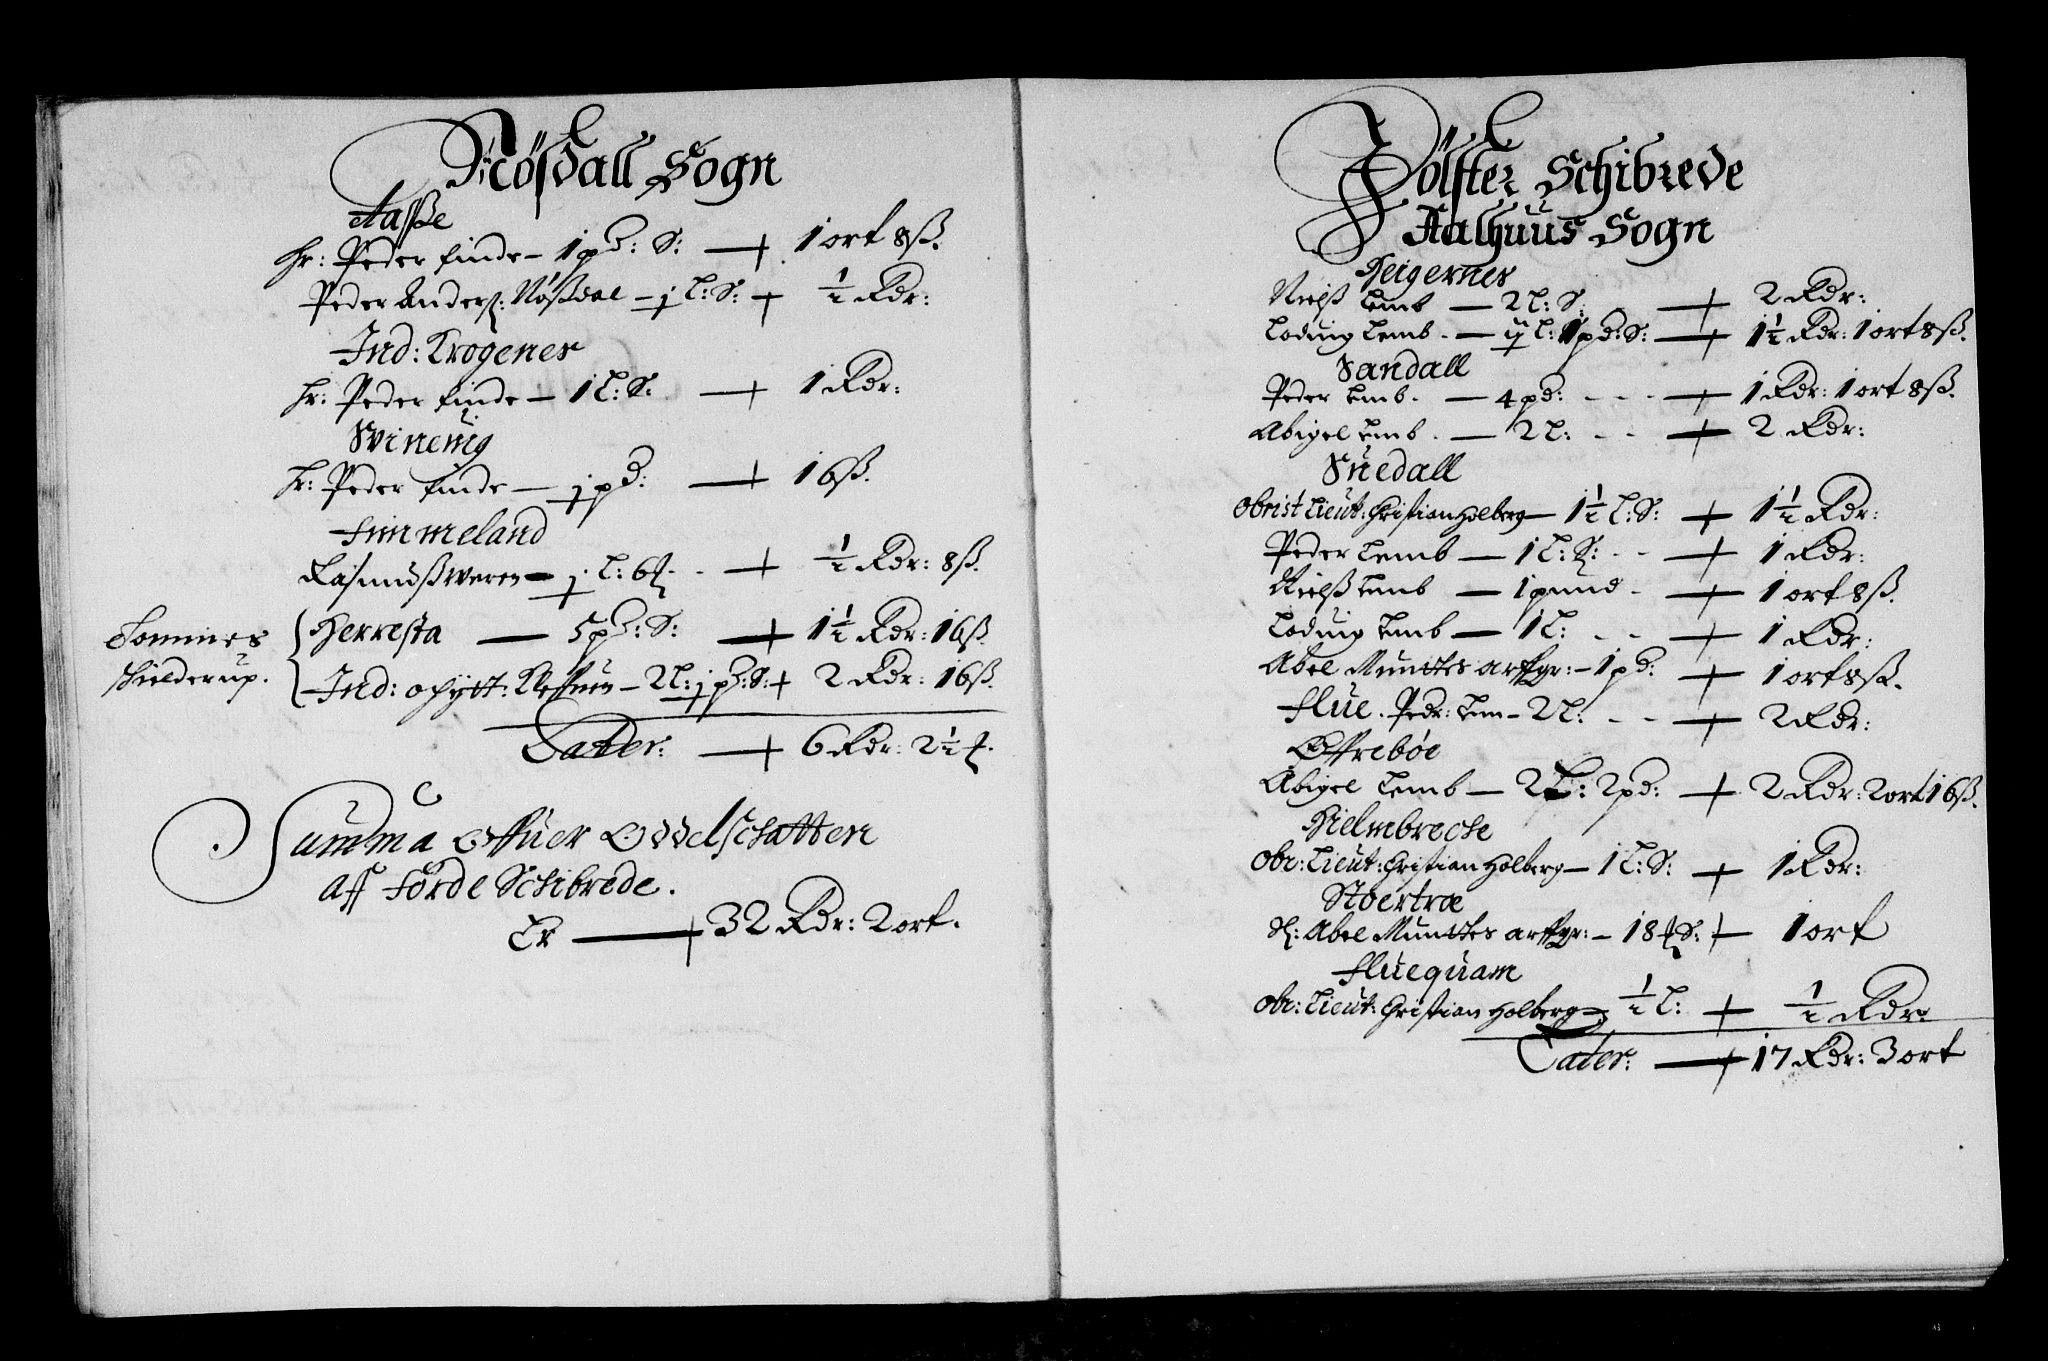 Nösdall Sogn
Aasße
Hr: Peder finde – 1 pd: S: — 1 ort 8 ß.
Peder Anderß: Nößdal – j L: S: + ½ Rdr:
Ind: Krogenes
Hr: Peder finde – 1 L: S: — 1 Rdr:
Svinevig
Hr: Peder finde – j pd: — 16 ß.
Simmeland
Rasmuß Weren – j L: 6 — ½ Rdr: 8 ß.
Tommes Schielderup. Herresta — 5 pd: S: — 1½ Rdr: 16 ß.
Ind: – 2 L: j pd: S: + 2 Rdr: 16 ß.
Later: — 6 Rdr: 2½
Summa Offuer Oddelschatten
Aff Förde Schibrede.
Er — 32 Rdr: 2 ort.
Jölster Schibrede
Aalhuus Sogn
Heigernes
Nielß Lemb — 2 L: S: — 2 Rdr:
Lodvig Lemb – L: 1 pd: S: — 1½ Rdr: 1 ort 8 ß.
Sandall
Peder Lemb. — 4 pd: — 1 Rdr: 1 ort 8 ß.
Abigel Lemb. — 2 L: — 2 Rdr:
Suedall
Obrist Lieut: Christian Holberg — 1½ L: S: + 1½ Rdr:
Peder Lemb — 1 L: S: — 1 Rdr:
Nielß Lemb — 1 pund – — 1 ort 8 ß.
Lodvig Lemb — 1 L: — 1 Rdr:
Abel Munstes arffgr: – 1 pd: — 1 ort 8 ß.
Flue. Pedr: Lem – 2 L: — 2 Rdr:
Øffreböe
Abigel Lemb — 2 L: 2 pd: — 2 Rdr: 2 ort 16 ß.
Hielmbreche
Obr: Lieut: Christian Holberg — 1 L: S: + 1 Rdr:
Stoertræ
Sl: Abel Munstes arffgr: – 18 S: — 1 ort
Fluequam
Obr: Lieut: Christian Holberg – ½ L: + ½ Rdr:
Later: — 17 Rdr: 3 ort